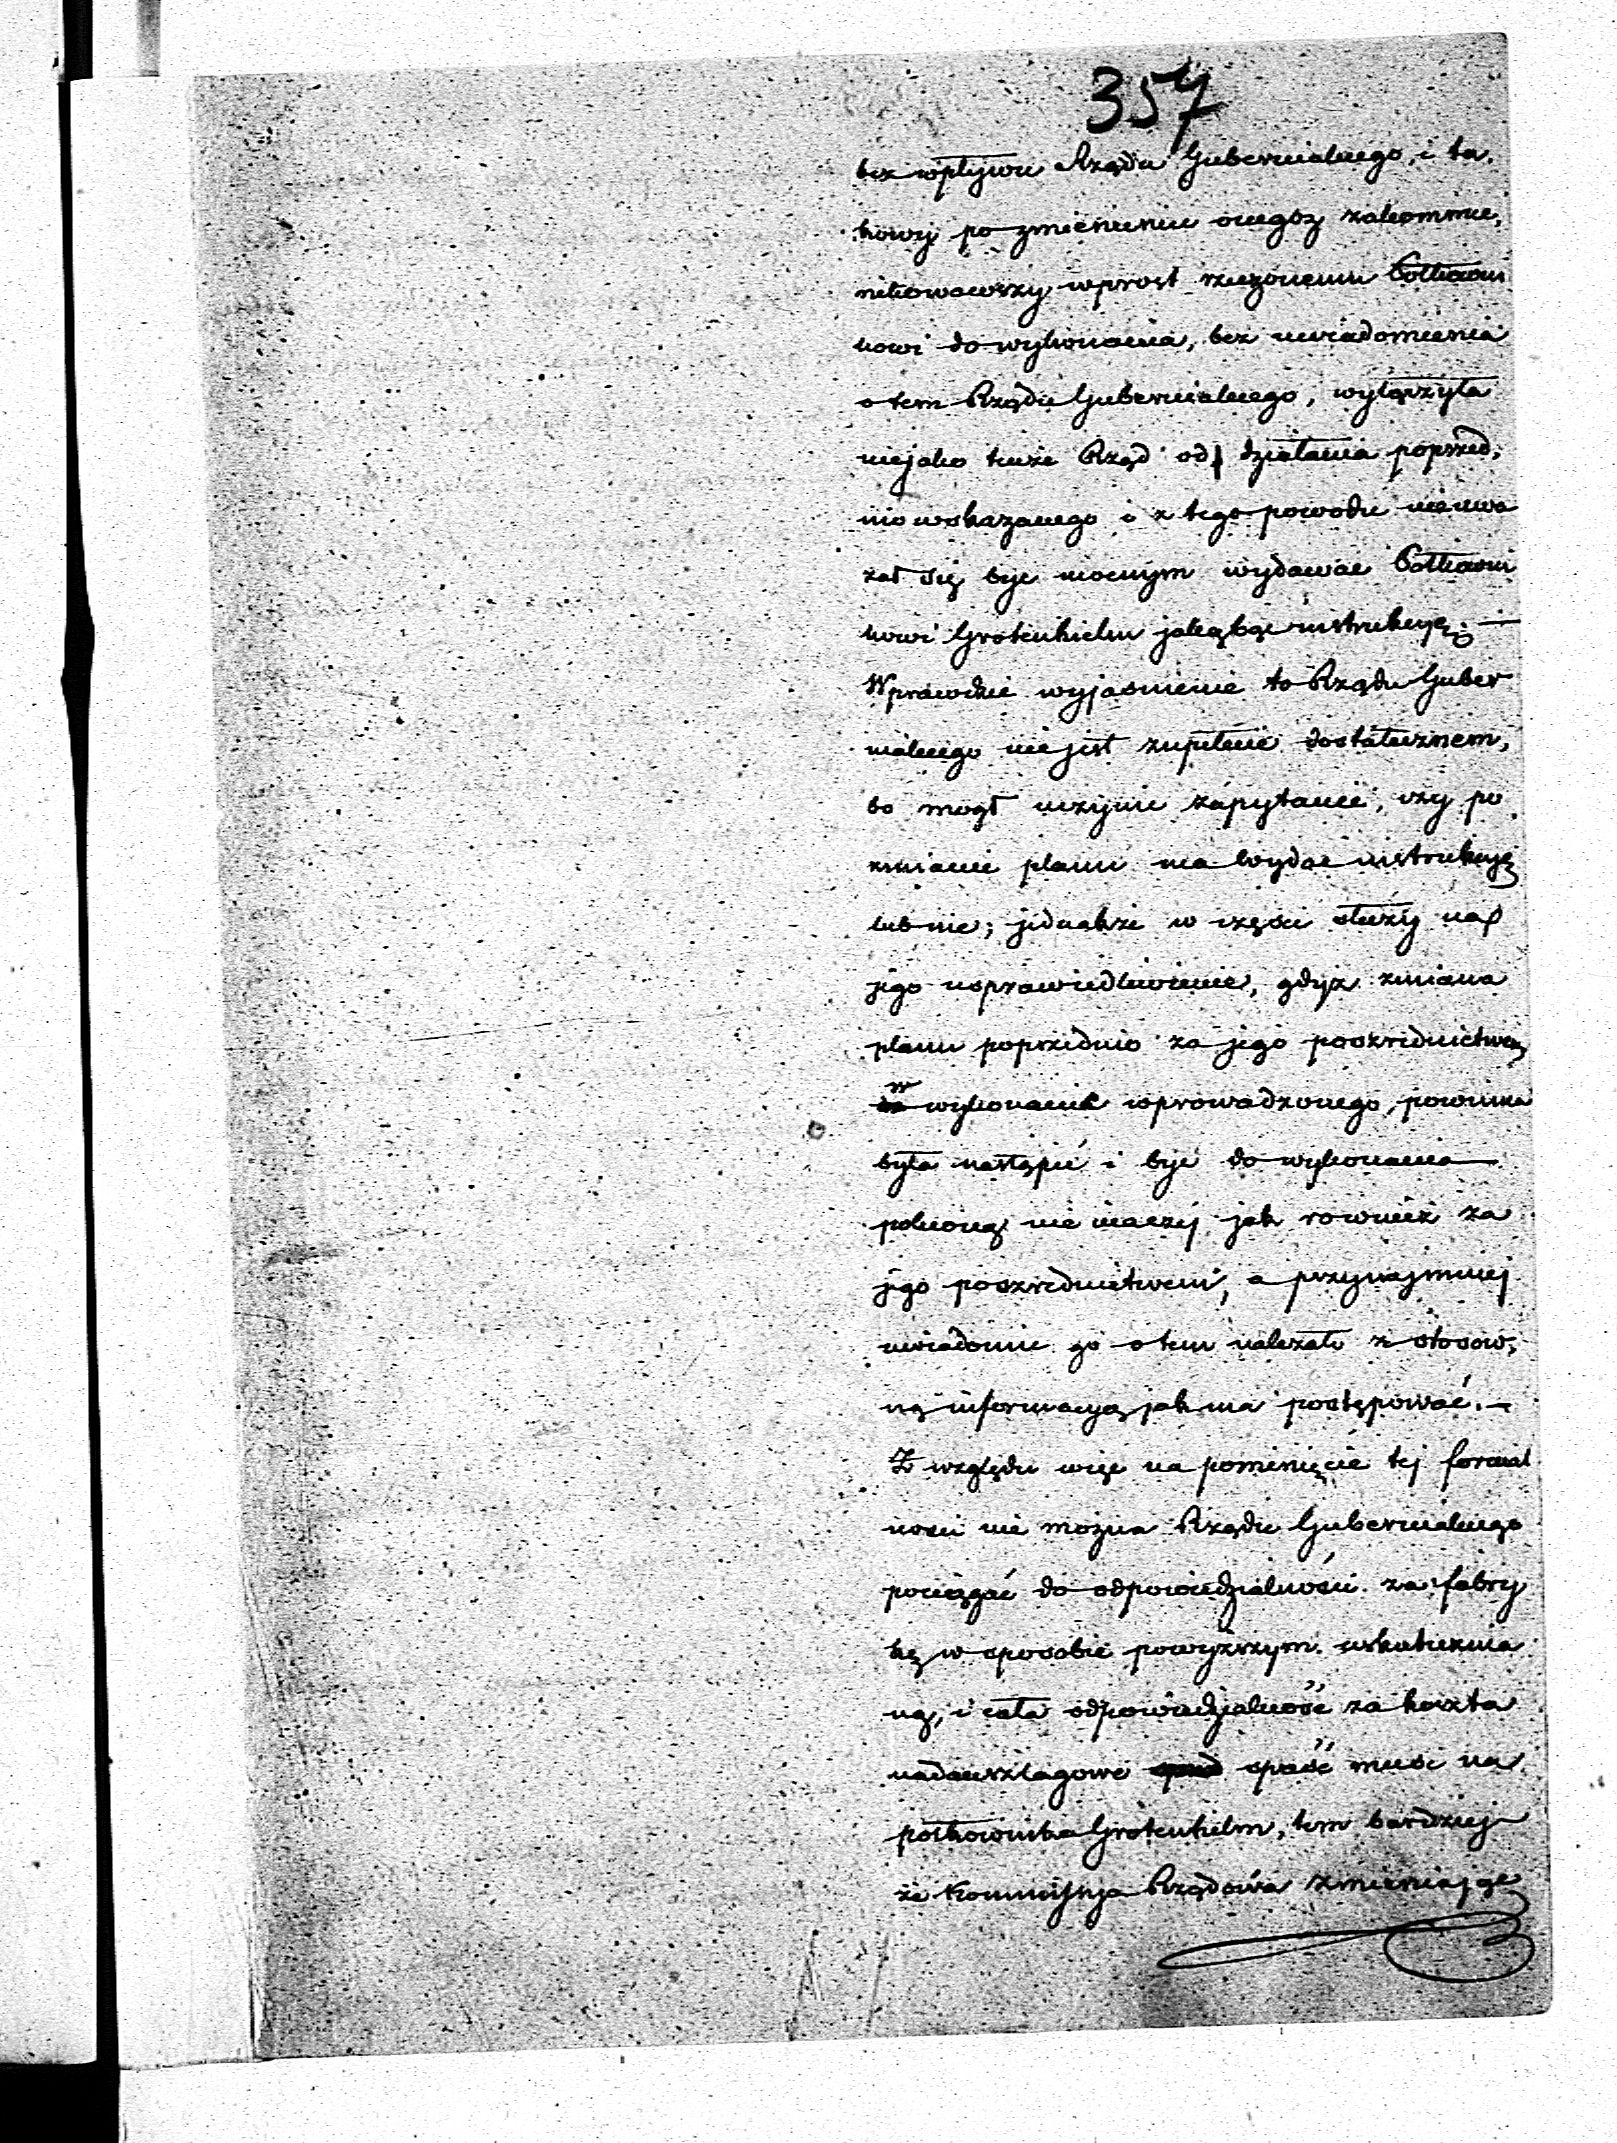 357
bez wpływu Rządu Gubernialnego, i ta,
kowy po zmienieniu onegoż zakommu,
nikowawszy wprost rzeczonemu Półkowni
kowi do wykonania, bez uwiadomienia
o tem Rządu Gubernialnego, wyłączyła
niejako tenże Rząd od działania poprzed,
nio wskazanego i z tego powodu nieuwa
żał się być mocnym wydawać Półkowni
kowi Grotenhielm jakąbąć instrukcyę. —
Wprawdzie wyjaśnienie to Rządu Guber
nialnego nie jest zupełnie dostatecznem,
bo mógł uczynić zapytanie, czy po
zmianie planu ma wydać instrukcyę
lub nie; jednakże w części służy na
jego usprawiedliwienie, gdyż zmiana
planu poprzednio za jego pośrednictwem
w wykonanie wprowadzonego, powinna
była nastąpić i być do wykonania
poleconą nie inaczej jak również za
jego pośrednictwem, a przynajmniej
uwiadomić go o tem należało z stosow,
ną informacyą jak ma postępować. —
Z względu więc na pominięcie tej formal
ności nie można Rządu Gubernialnego
pociągać do odpowiedzialności za fabry
kę w sposobie powyższym uskutecznio
ną, i cała odpowiedzialność za koszta
nadanszlagowe spaść musi na
półkownika Grotenhielm, tem bardziej
że Kommissya Rządowa zmieniając